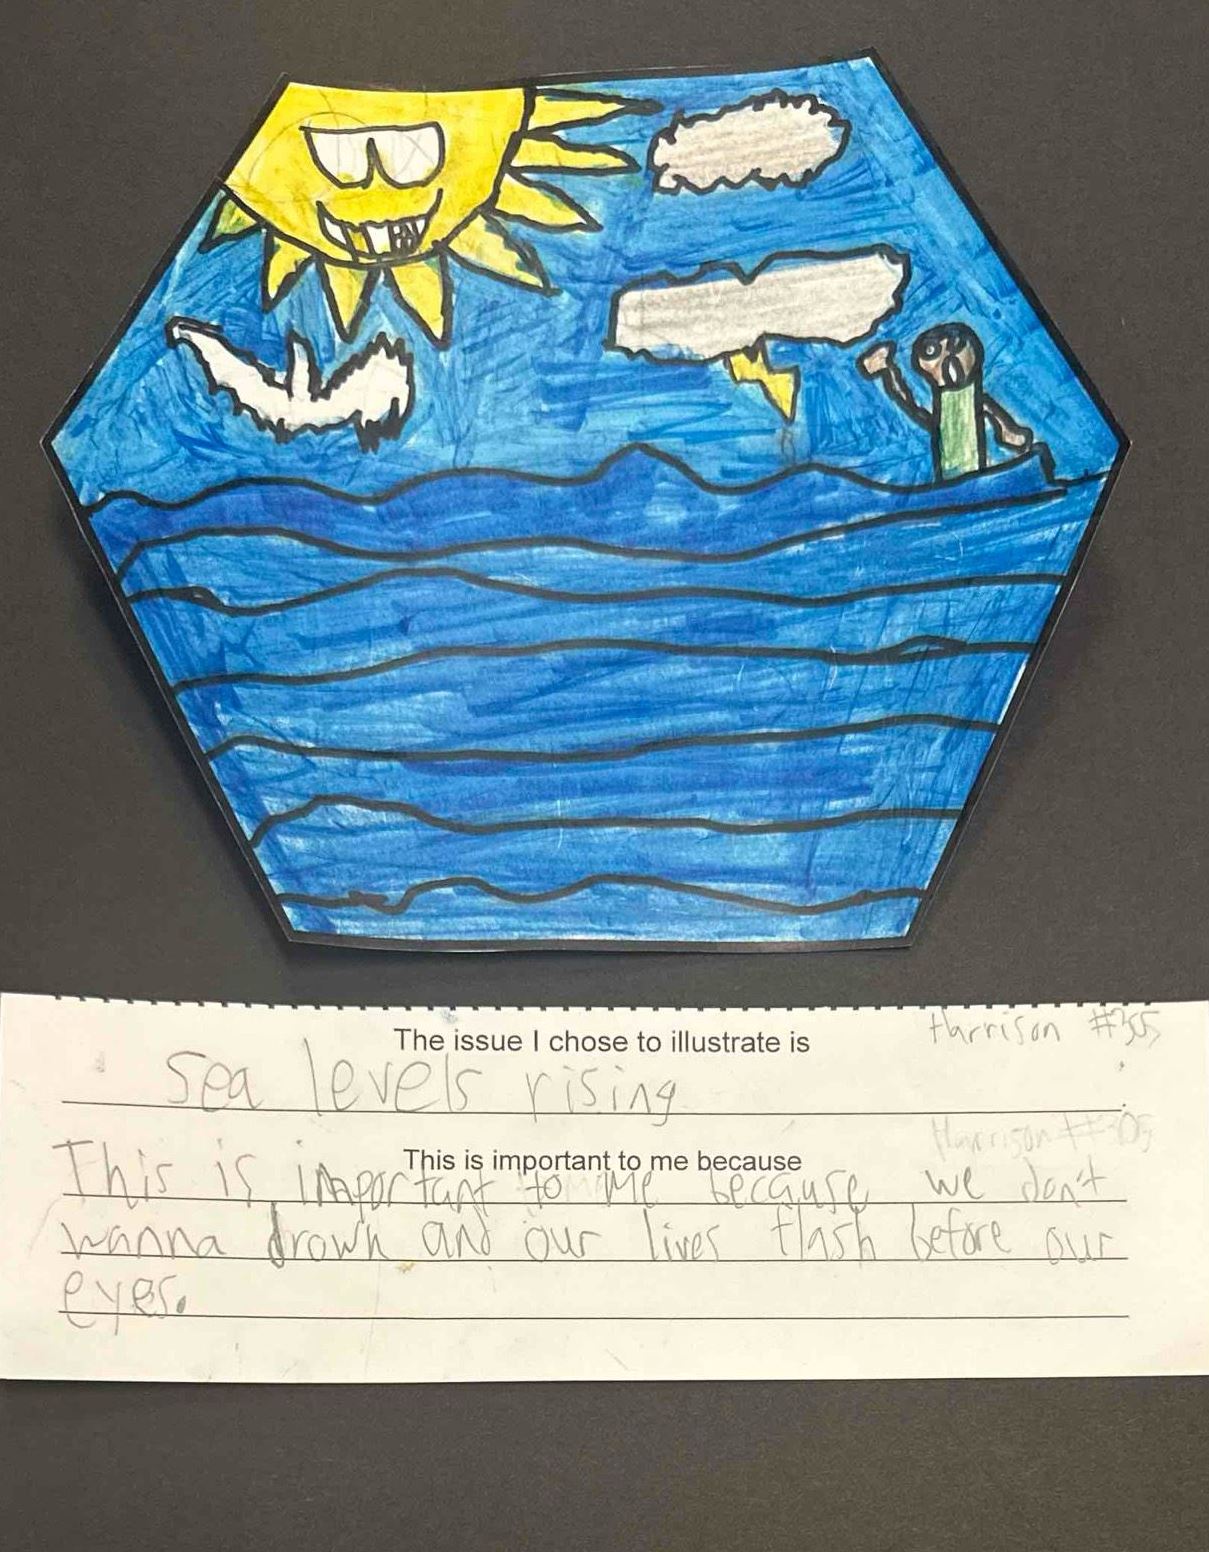 The issue I chose to illustrate is
Harrison #305
Sea levels rising
Harrison #305
This is important to me because
This is important to me because we don't
wanna drown and our lives flash before our
eyes.